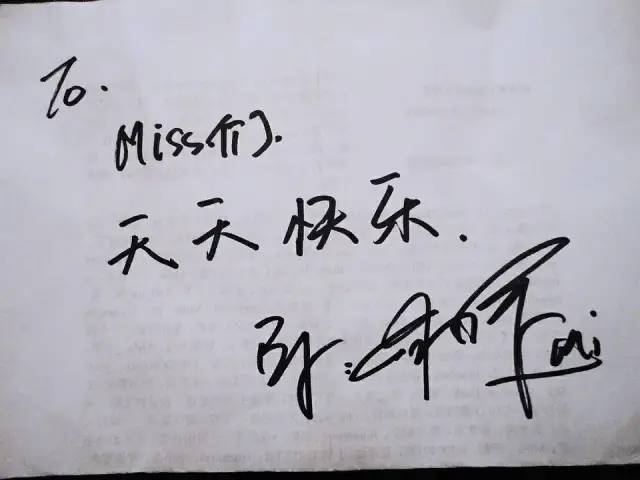 To.
Miss们.
天天快乐.
By: